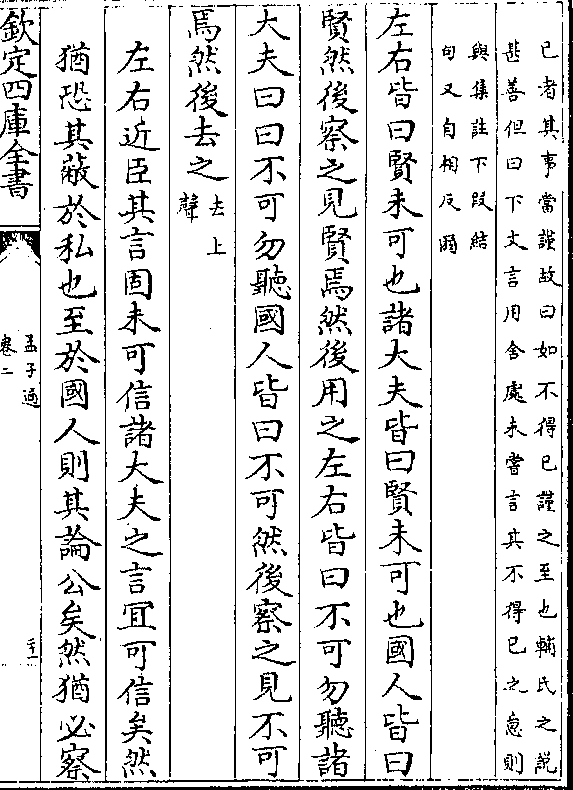 已者其事當謹故曰如不得已謹之至也輔氏之説
甚善但曰下文言用舍處未嘗言其不得已之意則
與集註下段結
句又自相反爾
左右皆曰賢未可也諸大夫皆曰賢未可也國人皆曰
賢然後察之見賢焉然後用之左右皆曰不可勿聽諸
大夫曰曰不可勿聽國人皆曰不可然後察之見不可
焉然後去之去上
聲
左右近臣其言固未可信諸大夫之言宜可信矣然
猶恐其蔽於私也至於國人則其論公矣然猶必察
欽定四庫全書
孟子通
卷二